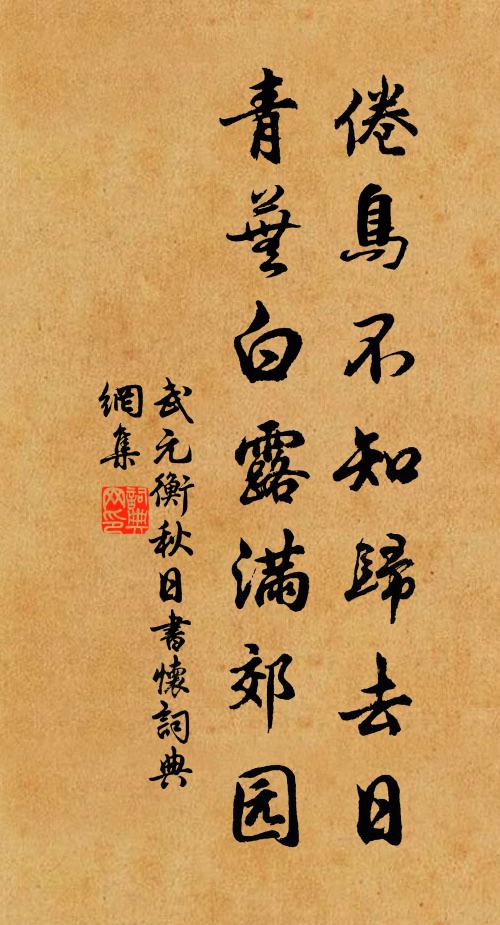 倦鳥不知歸去日
青蕪白露滿郊园
武元衡秋日書懷詞典
網集
詞典
网印